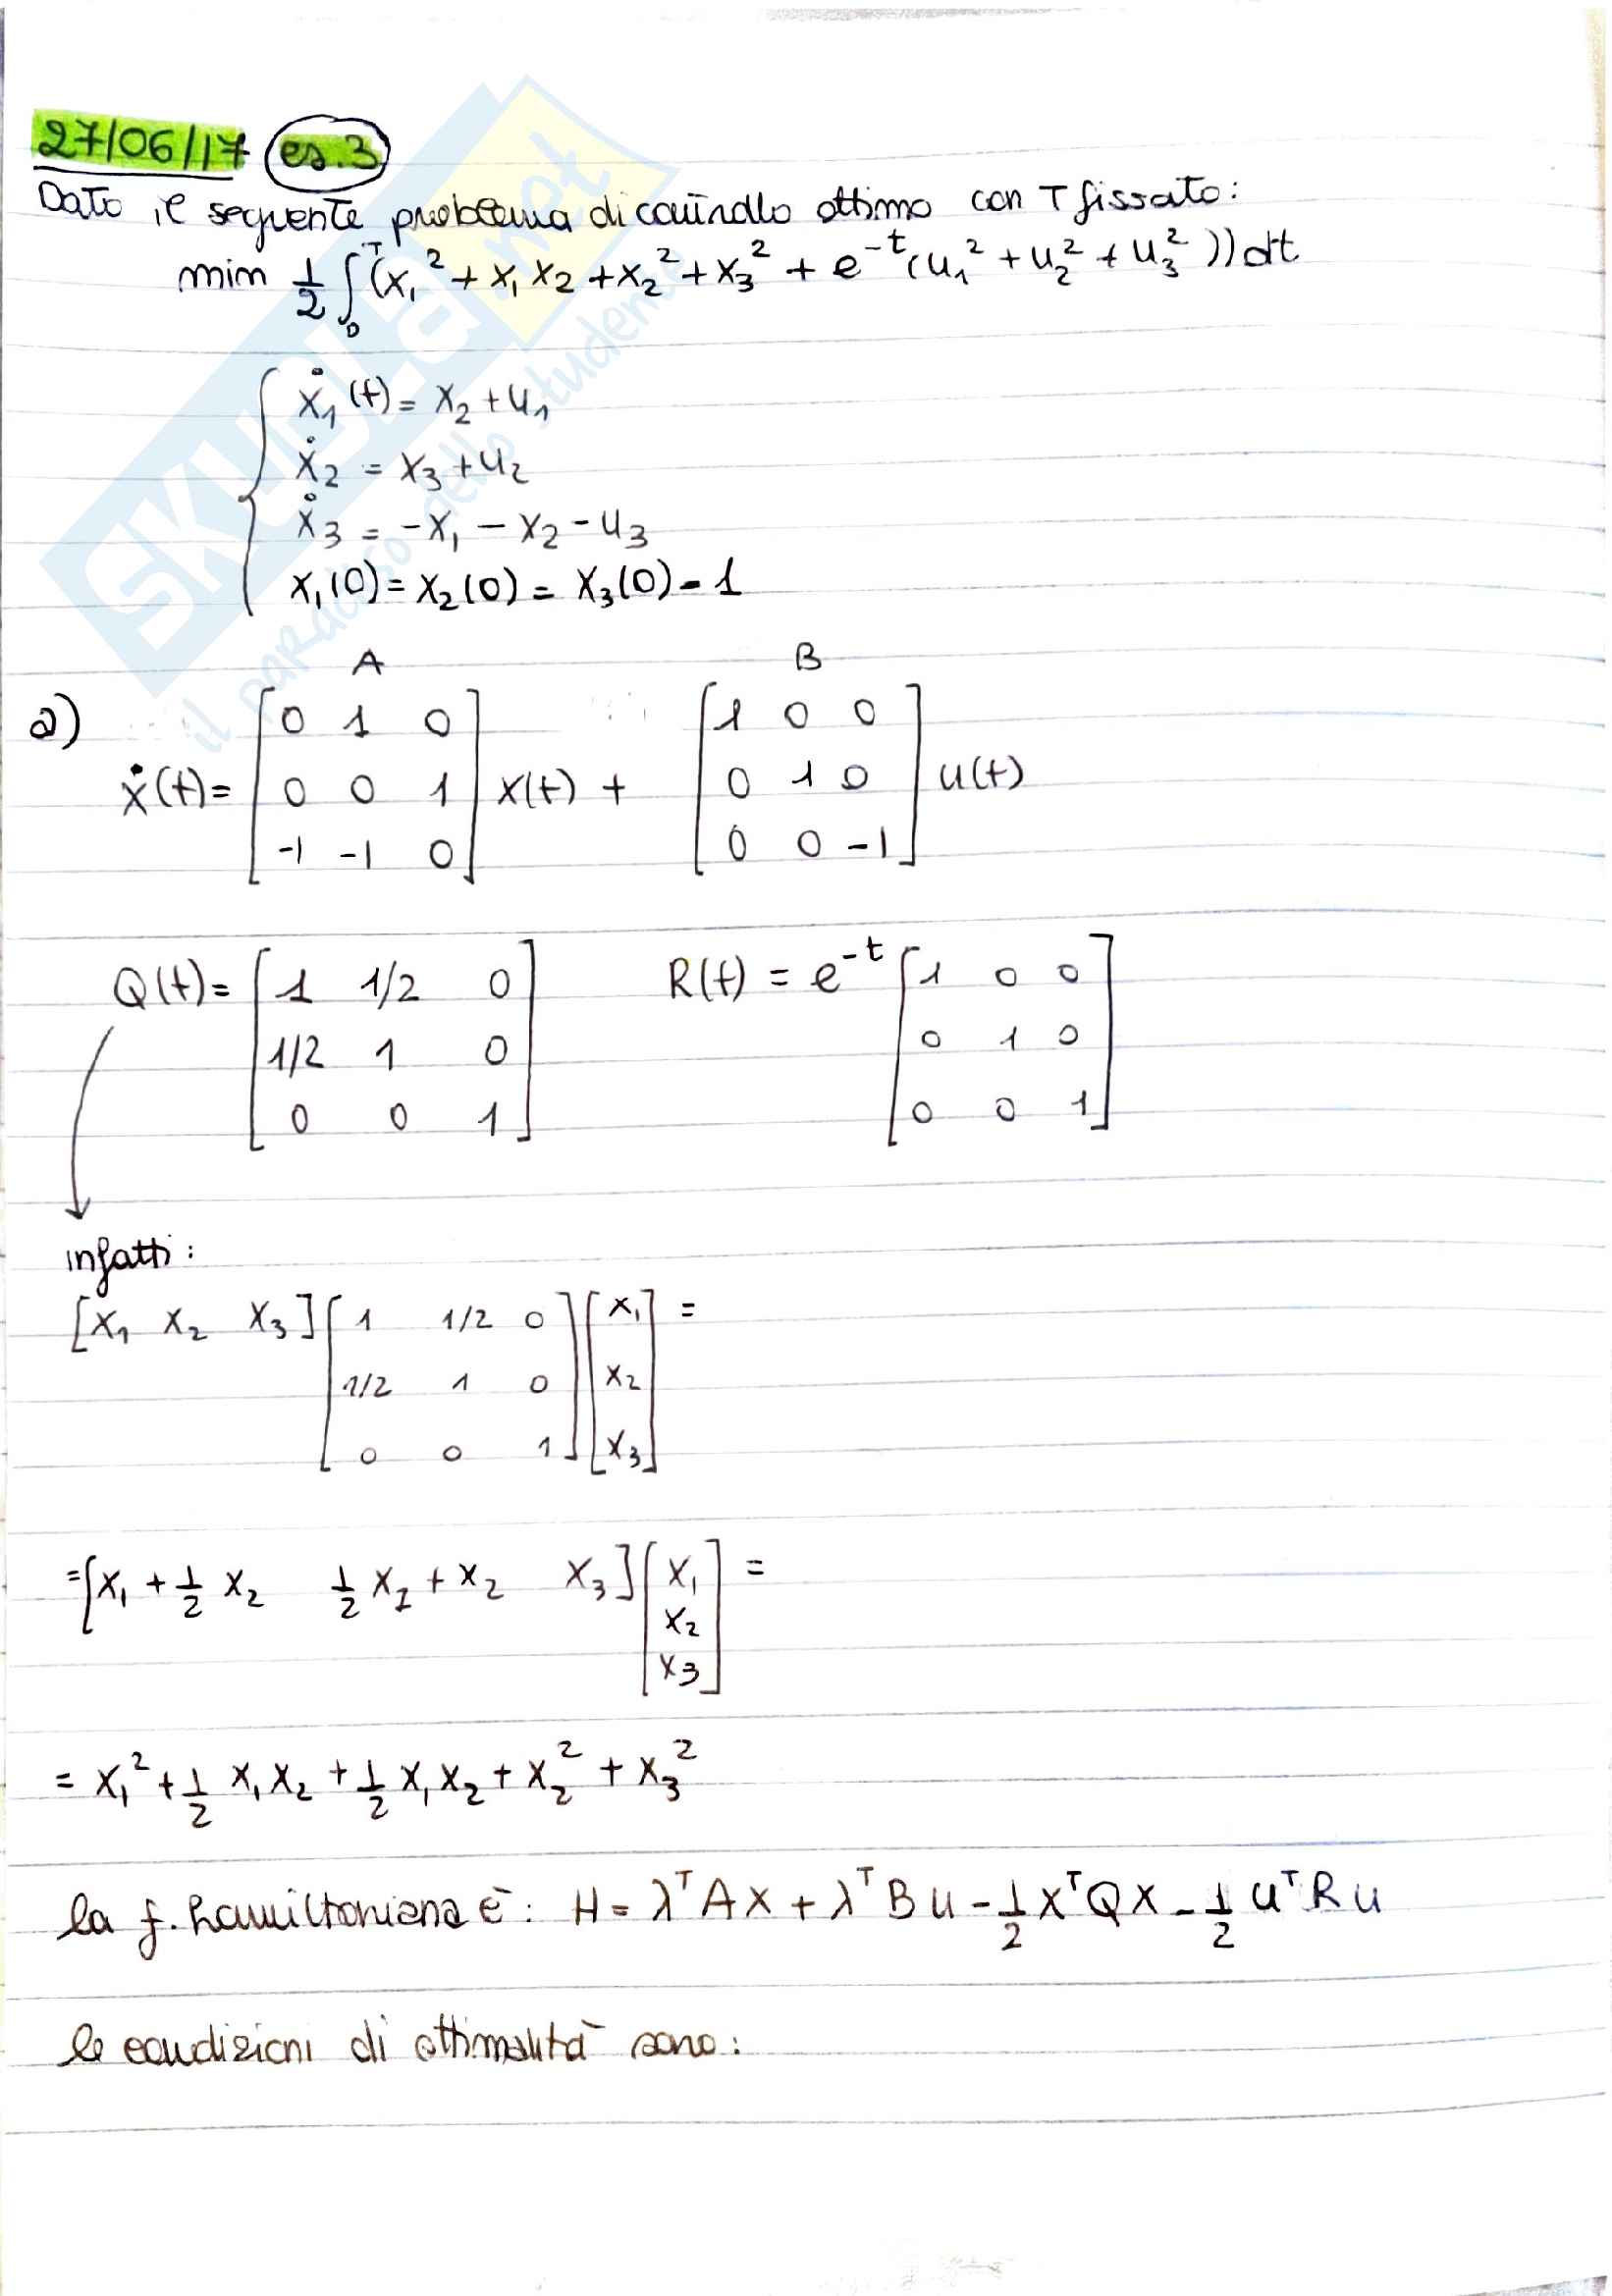 27/06/17 es.3
Dato il seguente problema di controllo ottimo con T fissato:
min 1/2 ∫₀ᵀ (x₁² + x₁x₂ + x₂² + x₃² + e⁻ᵗ(u₁² + u₂² + u₃²))dt
ẋ₁(t) = x₂ + u₁
ẋ₂ = x₃ + u₂
ẋ₃ = -x₁ - x₂ - u₃
x₁(0) = x₂(0) = x₃(0) = 1
A B
a) ẋ(t) = [0 1 0; 0 0 1; -1 -1 0] x(t) + [1 0 0; 0 1 0; 0 0 -1] u(t)
Q(t) = [1 1/2 0; 1/2 1 0; 0 0 1] R(t) = e⁻ᵗ [1 0 0; 0 1 0; 0 0 1]
infatti:
[x₁ x₂ x₃] [1 1/2 0; 1/2 1 0; 0 0 1] [x₁; x₂; x₃] =
= [x₁ + 1/2 x₂ 1/2 x₁ + x₂ x₃] [x₁; x₂; x₃] =
= x₁² + 1/2 x₁x₂ + 1/2 x₁x₂ + x₂² + x₃²
la f. hamiltoniana è: H = λᵀAx + λᵀBu - 1/2 xᵀQx - 1/2 uᵀRu
le condizioni di ottimalità sono:
SKUOLA.net
il paradiso dello studente